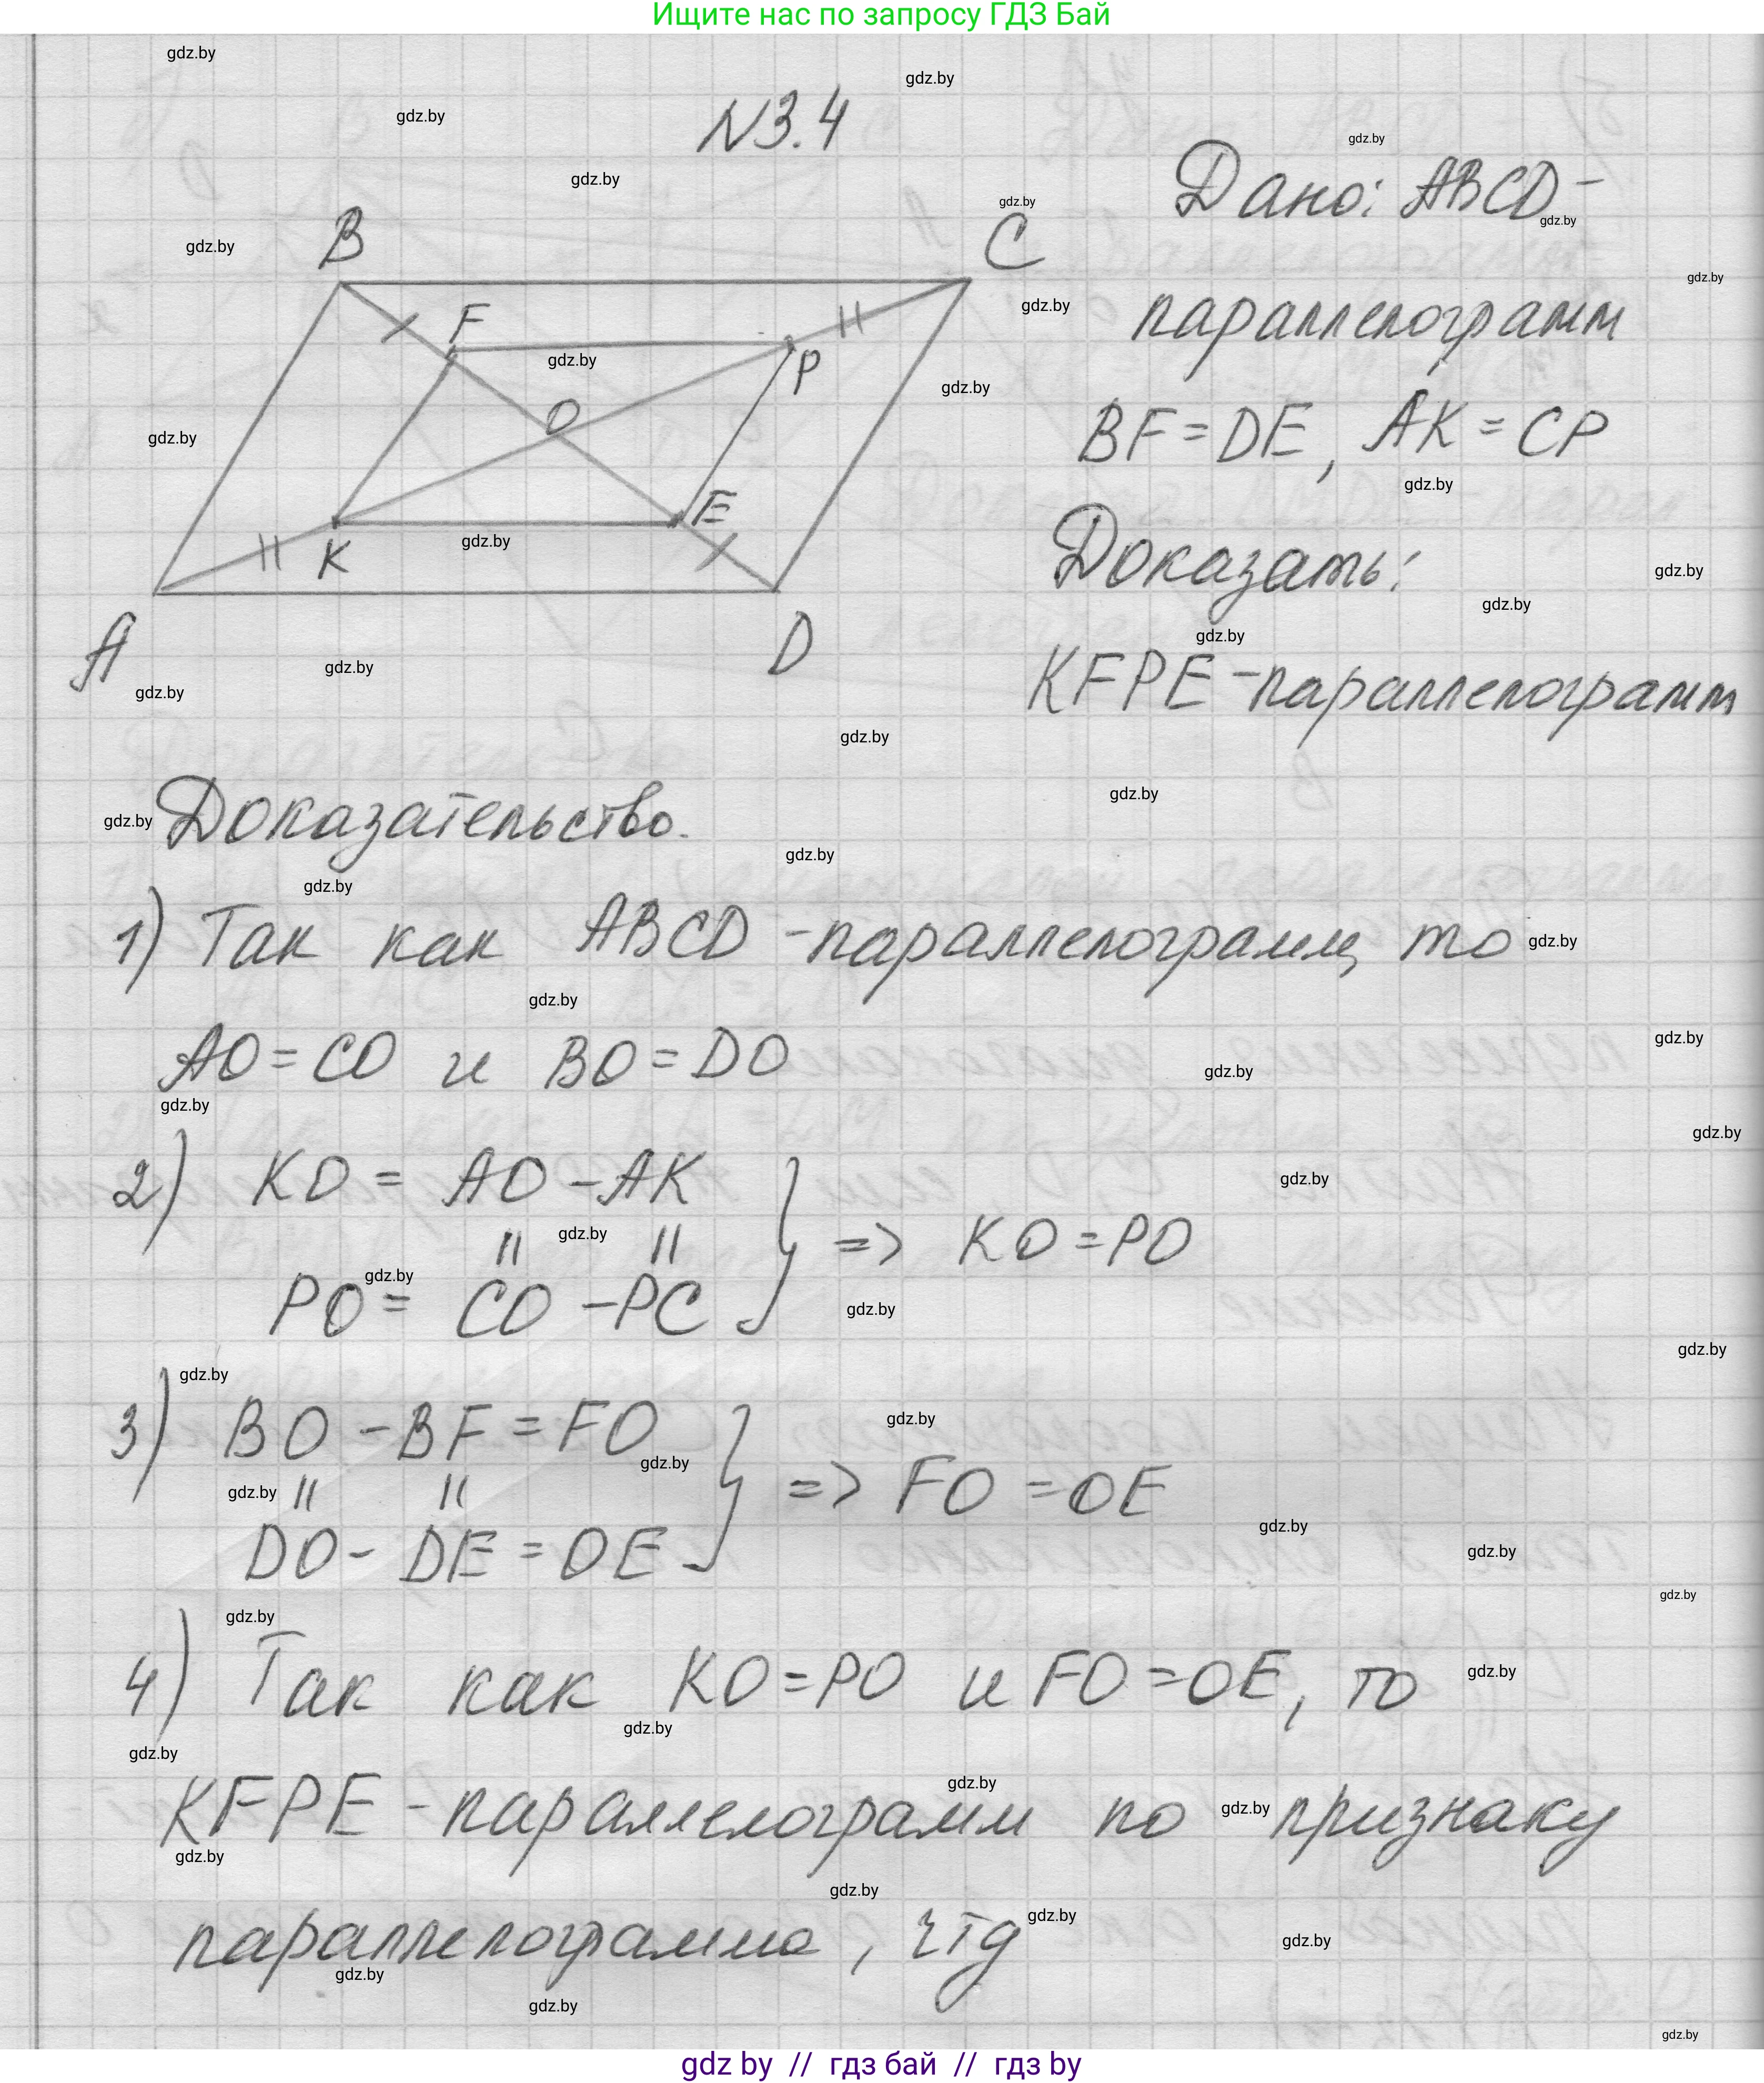 Ищите нас по запросу ГДЗ Бай
N3.4
Дано: ABCD-
параллелограмм
BF=DE, AK=CP
Доказать:
KFPE-параллелограмм
B
C
F
P
O
E
K
A
D
Доказательство.
1) Так как ABCD -параллелограмм, то
AO=CO и BO=DO
2) KO = AO -AK
" "
PO= CO -PC
} => KO=PO
3) BO -BF=FO
" "
DO- DE=OE
} => FO=OE
4) Так как KO=PO и FO=OE, то
KFPE-параллелограмм по признаку
параллелограмма, чтд
gdz.by
gdz by // гдз бай // гдз by